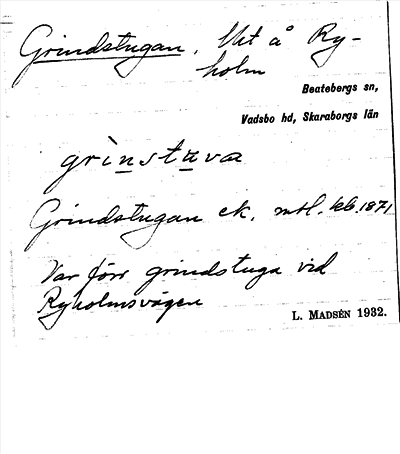 Grindstugan, Utt å Ry-
holm
Beatebergs sn,
Vadsbo hd, Skaraborgs län
grinstuva
Grindstugan ek. mtl. kb. 1871
Var förr grindstuga vid
Ryholmsvägen
L. MADSÉN 1932.